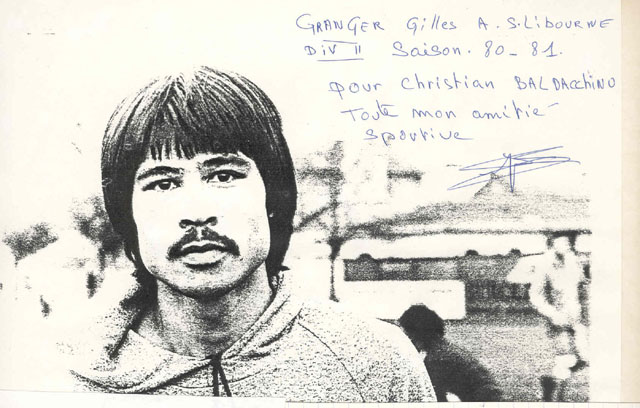 GRANGER Gilles A.S. LIBOURNE
DIV II Saison. 80-81.
pour Christian BALDACCHINO
Toute mon amitié
Sportive